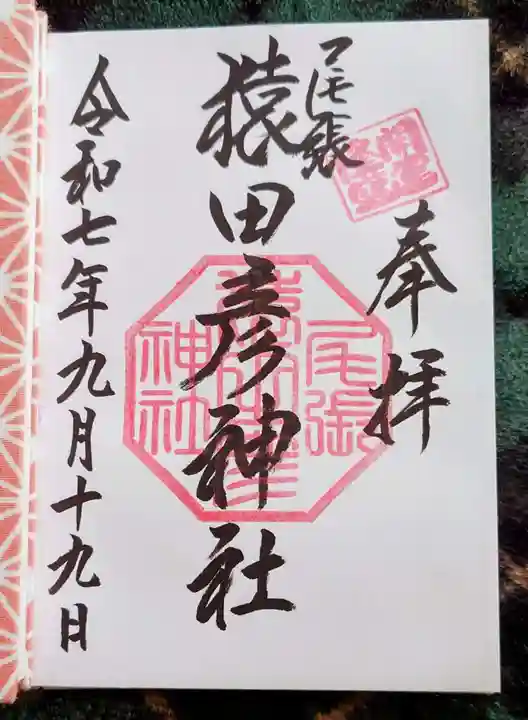 奉拝
尾張
猿田彦神社
令和七年九月十九日
尾張
猿田彦
神社